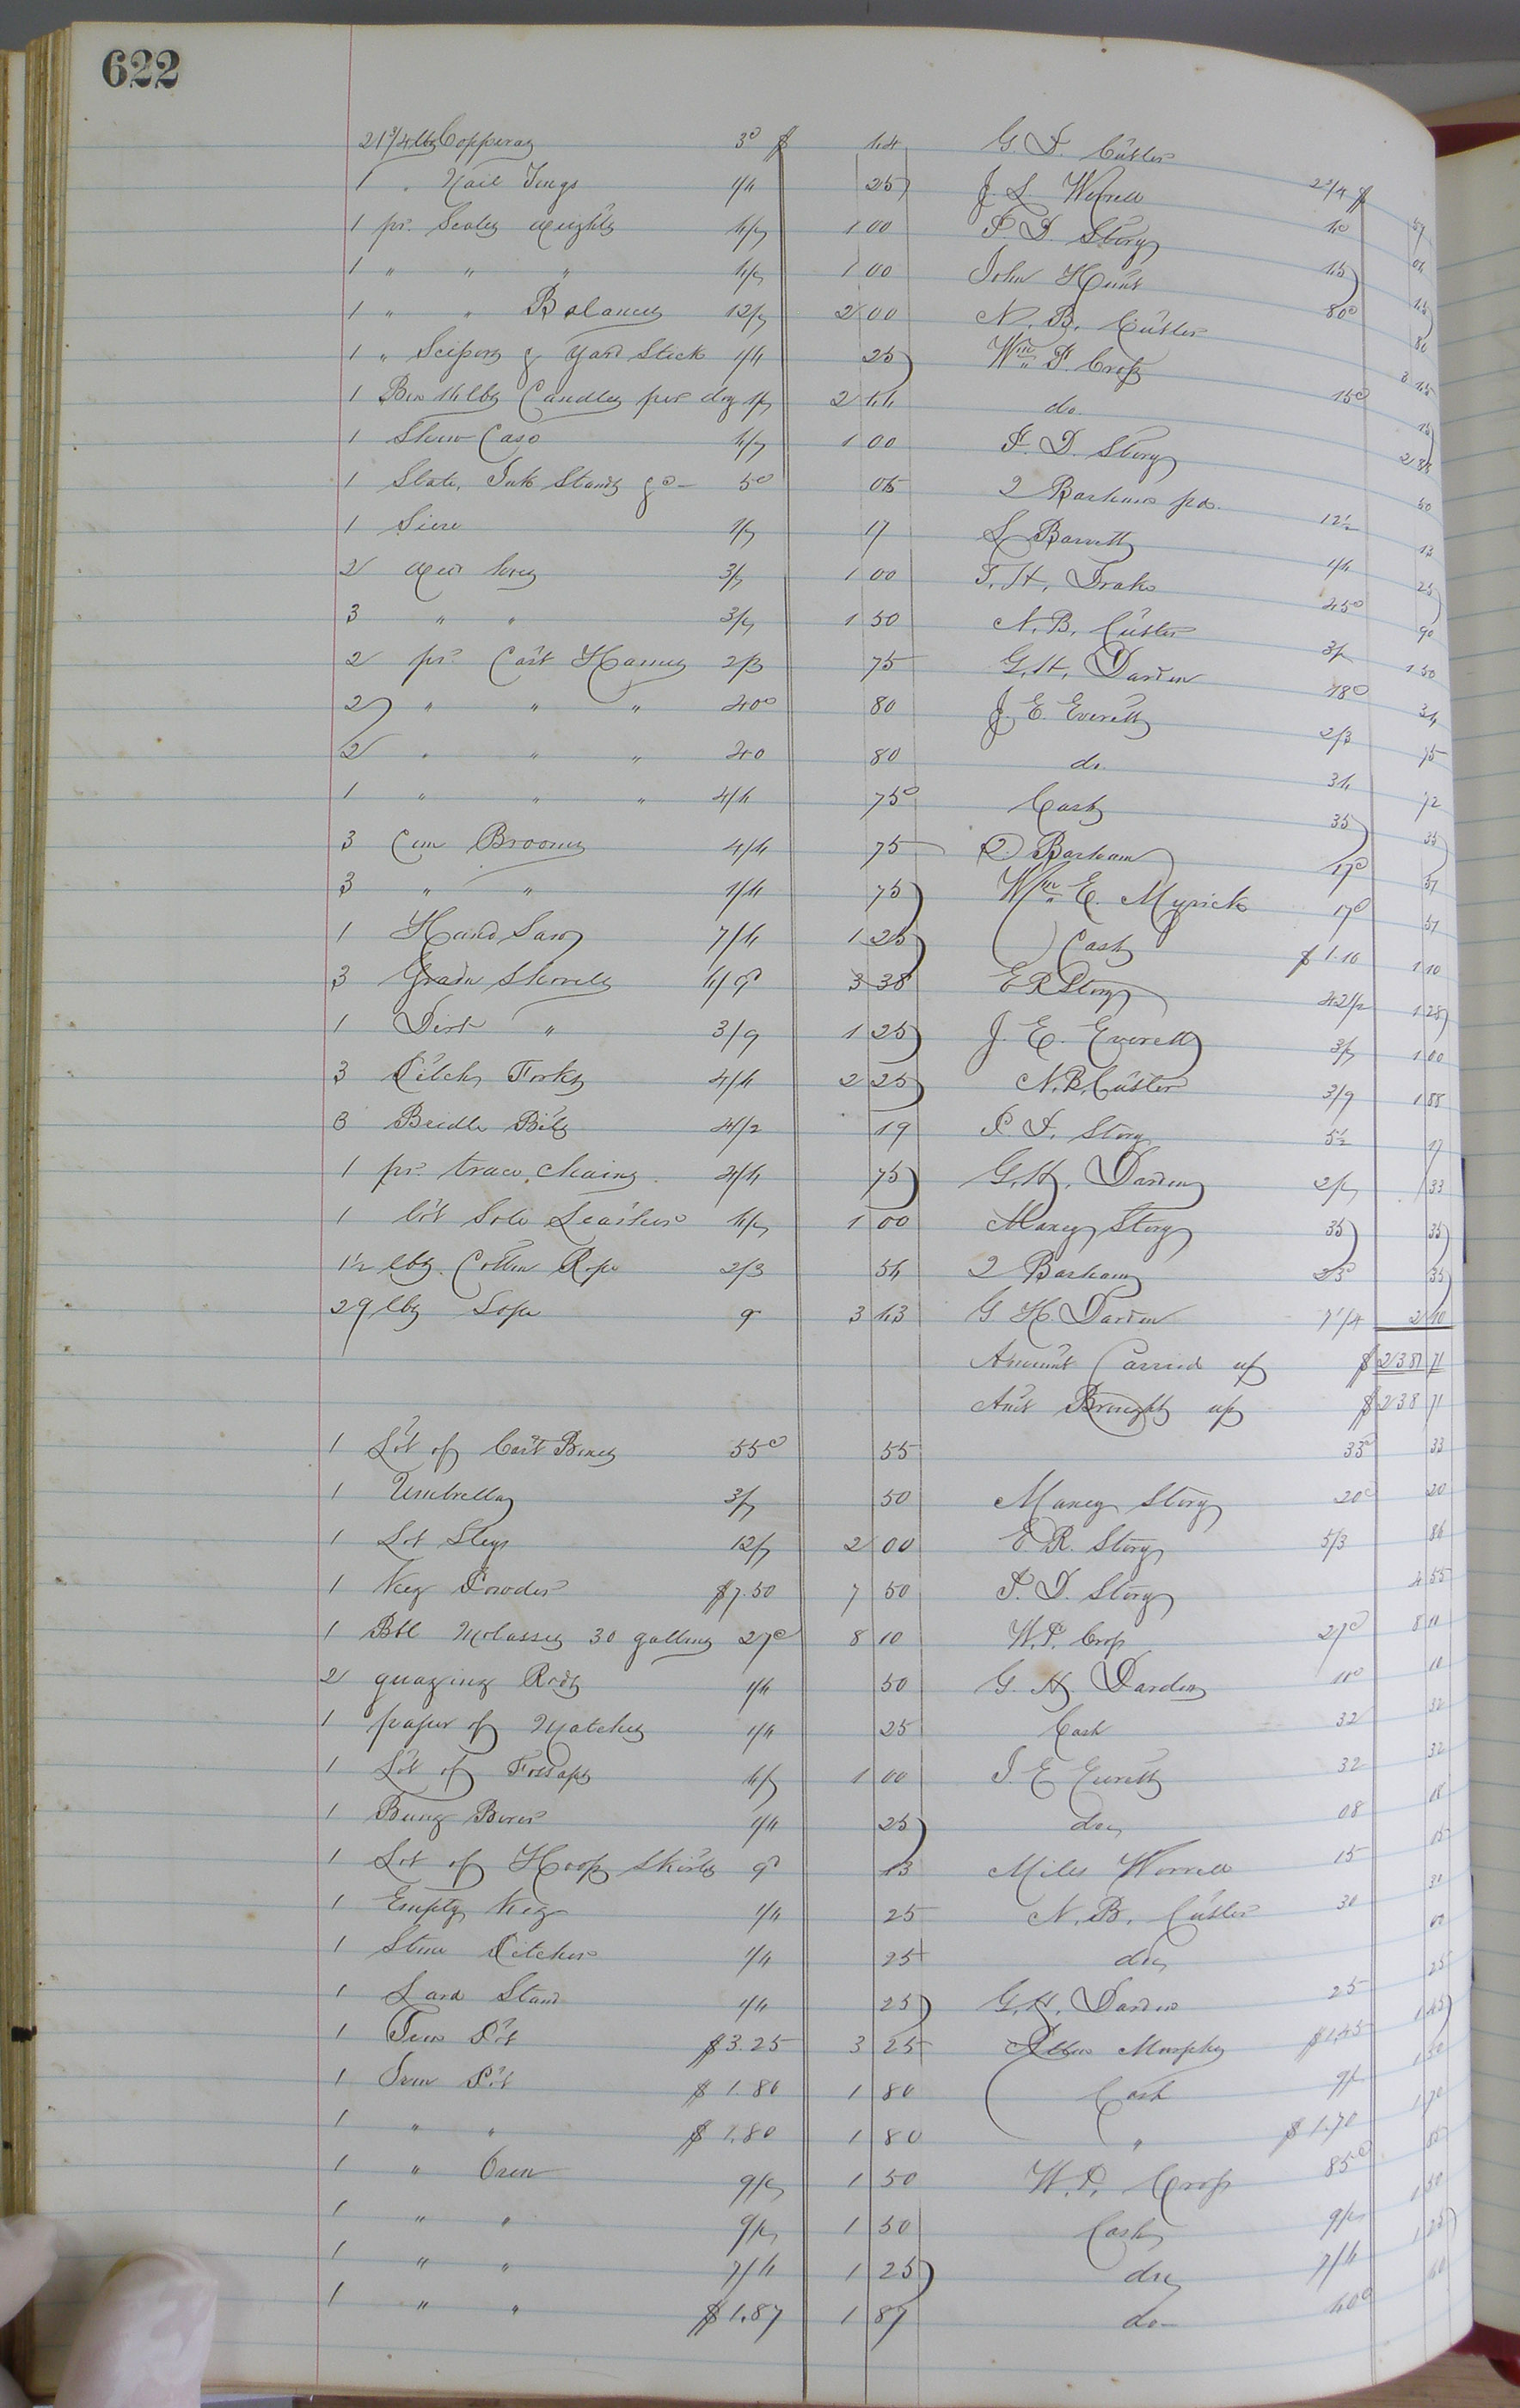 622
21 3/4 lbs Copperas 3c $ 44 G. D. Cutler
1 " Nail Tongs 1/4 25 J. L. Worrell 2 3/4 $
1 pr. Scales weights 4/ 1 00 P. D. Story
1 " " " 4/ 1 00 John Hunt 45 04
1 " " Balances 12/ 2 00 N. B. Cutler 80c 45
1 " Scissors & Yard Stick 1/4 25 Wm. P. Crop 80
1 Box 14 lbs Candles per doz 1/ 2 44 do. 15c 3 45
1 Show Case 4/ 1 00 P. D. Story 15
1 Slate, Ink Stands &c - 5c 05 Q Barham
1 Sieve 1/ 17 L Barrett 12 1/2 50
2 Weed hoes 3/ 1 00 T. H. Drake 1/4 13
3 " " 3/ 1 50 N. B. Cutler 45c 25
2 pr. Cart Hames 2/3 75 G. H. Darden 3/ 90
2 " " " 40c 80 J. E. Everett 18c 1 50
2 " " " 40 80 do. 2/3
1 " " " 4/6 75c Cash 75
3 Corn Brooms 1/6 75 Q. Barham 35 72
3 " " 1/6 75 Wm. E. Myrick 17c 35
1 Hand Saw 7/6 1 25 Cash 17c 51
3 Grain Shovels 6/9 3 38 E R Story $1.10 1 10
1 Dirt " 3/9 1 25 J. E. Everett 42 1/2 1 28
3 Pitch Forks 4/6 2 25 N. B. Cutler 3/ 1 00
3 Bridle Bits 4/2 19 P. D. Story 3/9 1 88
1 pr. trace chains 4/6 75 G. H. Darden 5 1/2 17
1 lot Sole Leather 4/ 1 00 Maney Story 2/ 33
1 1/2 lbs. Cotton Rope 2/3 54 Q Barham 35 35
29 lbs Sope 9 3 43 G. H. Darden 7 1/4 2 10
Amount Carried up $ 238 71
Amt Brought up $ 238 71
1 Lot of Cart Boxes 55c 55 33c 33
1 Umbrella 3/ 50 Maney Story 20c 20
1 Lot Sleys 12/ 2 00 E R. Story 5/3 86
1 Keg Powder $7.50 7 50 P. D. Story 4 55
1 Bbl Molasses 30 gallons 27c 8 10 W. P. Crop 27c 8 10
2 guaging Rods 1/6 50 G. H. Darden 10
1 paper of Matches 1/6 25 Cash 32 32
1 Lot of 4/ 1 00 J. E. Everett 32 32
1 Bung Borer 1/6 25 do 08 08
1 Lot of Hoop Skirts 9 13 Miles Worrell 15 15
1 Empty Keg 1/6 25 N. B. Cutler 30 30
1 Stone Pitcher 1/6 25 do
1 Lard Stand 1/6 25 G. H. Darden 25 25
1 Iron Pot $3.25 3 25 Murphy $1.45 1 45
1 Iron Pot $1.80 1 80 Cash 9/ 1 50
1 " " $1.80 1 80 " $1.70 1 70
1 " Oven 9/ 1 50 W. P. Crop 85c 85
1 " " 9/ 1 50 Cash 9/ 1 50
1 " " 7/6 1 25 do 7/6 1 25
1 " " $1.87 1 87 do - 40c 40